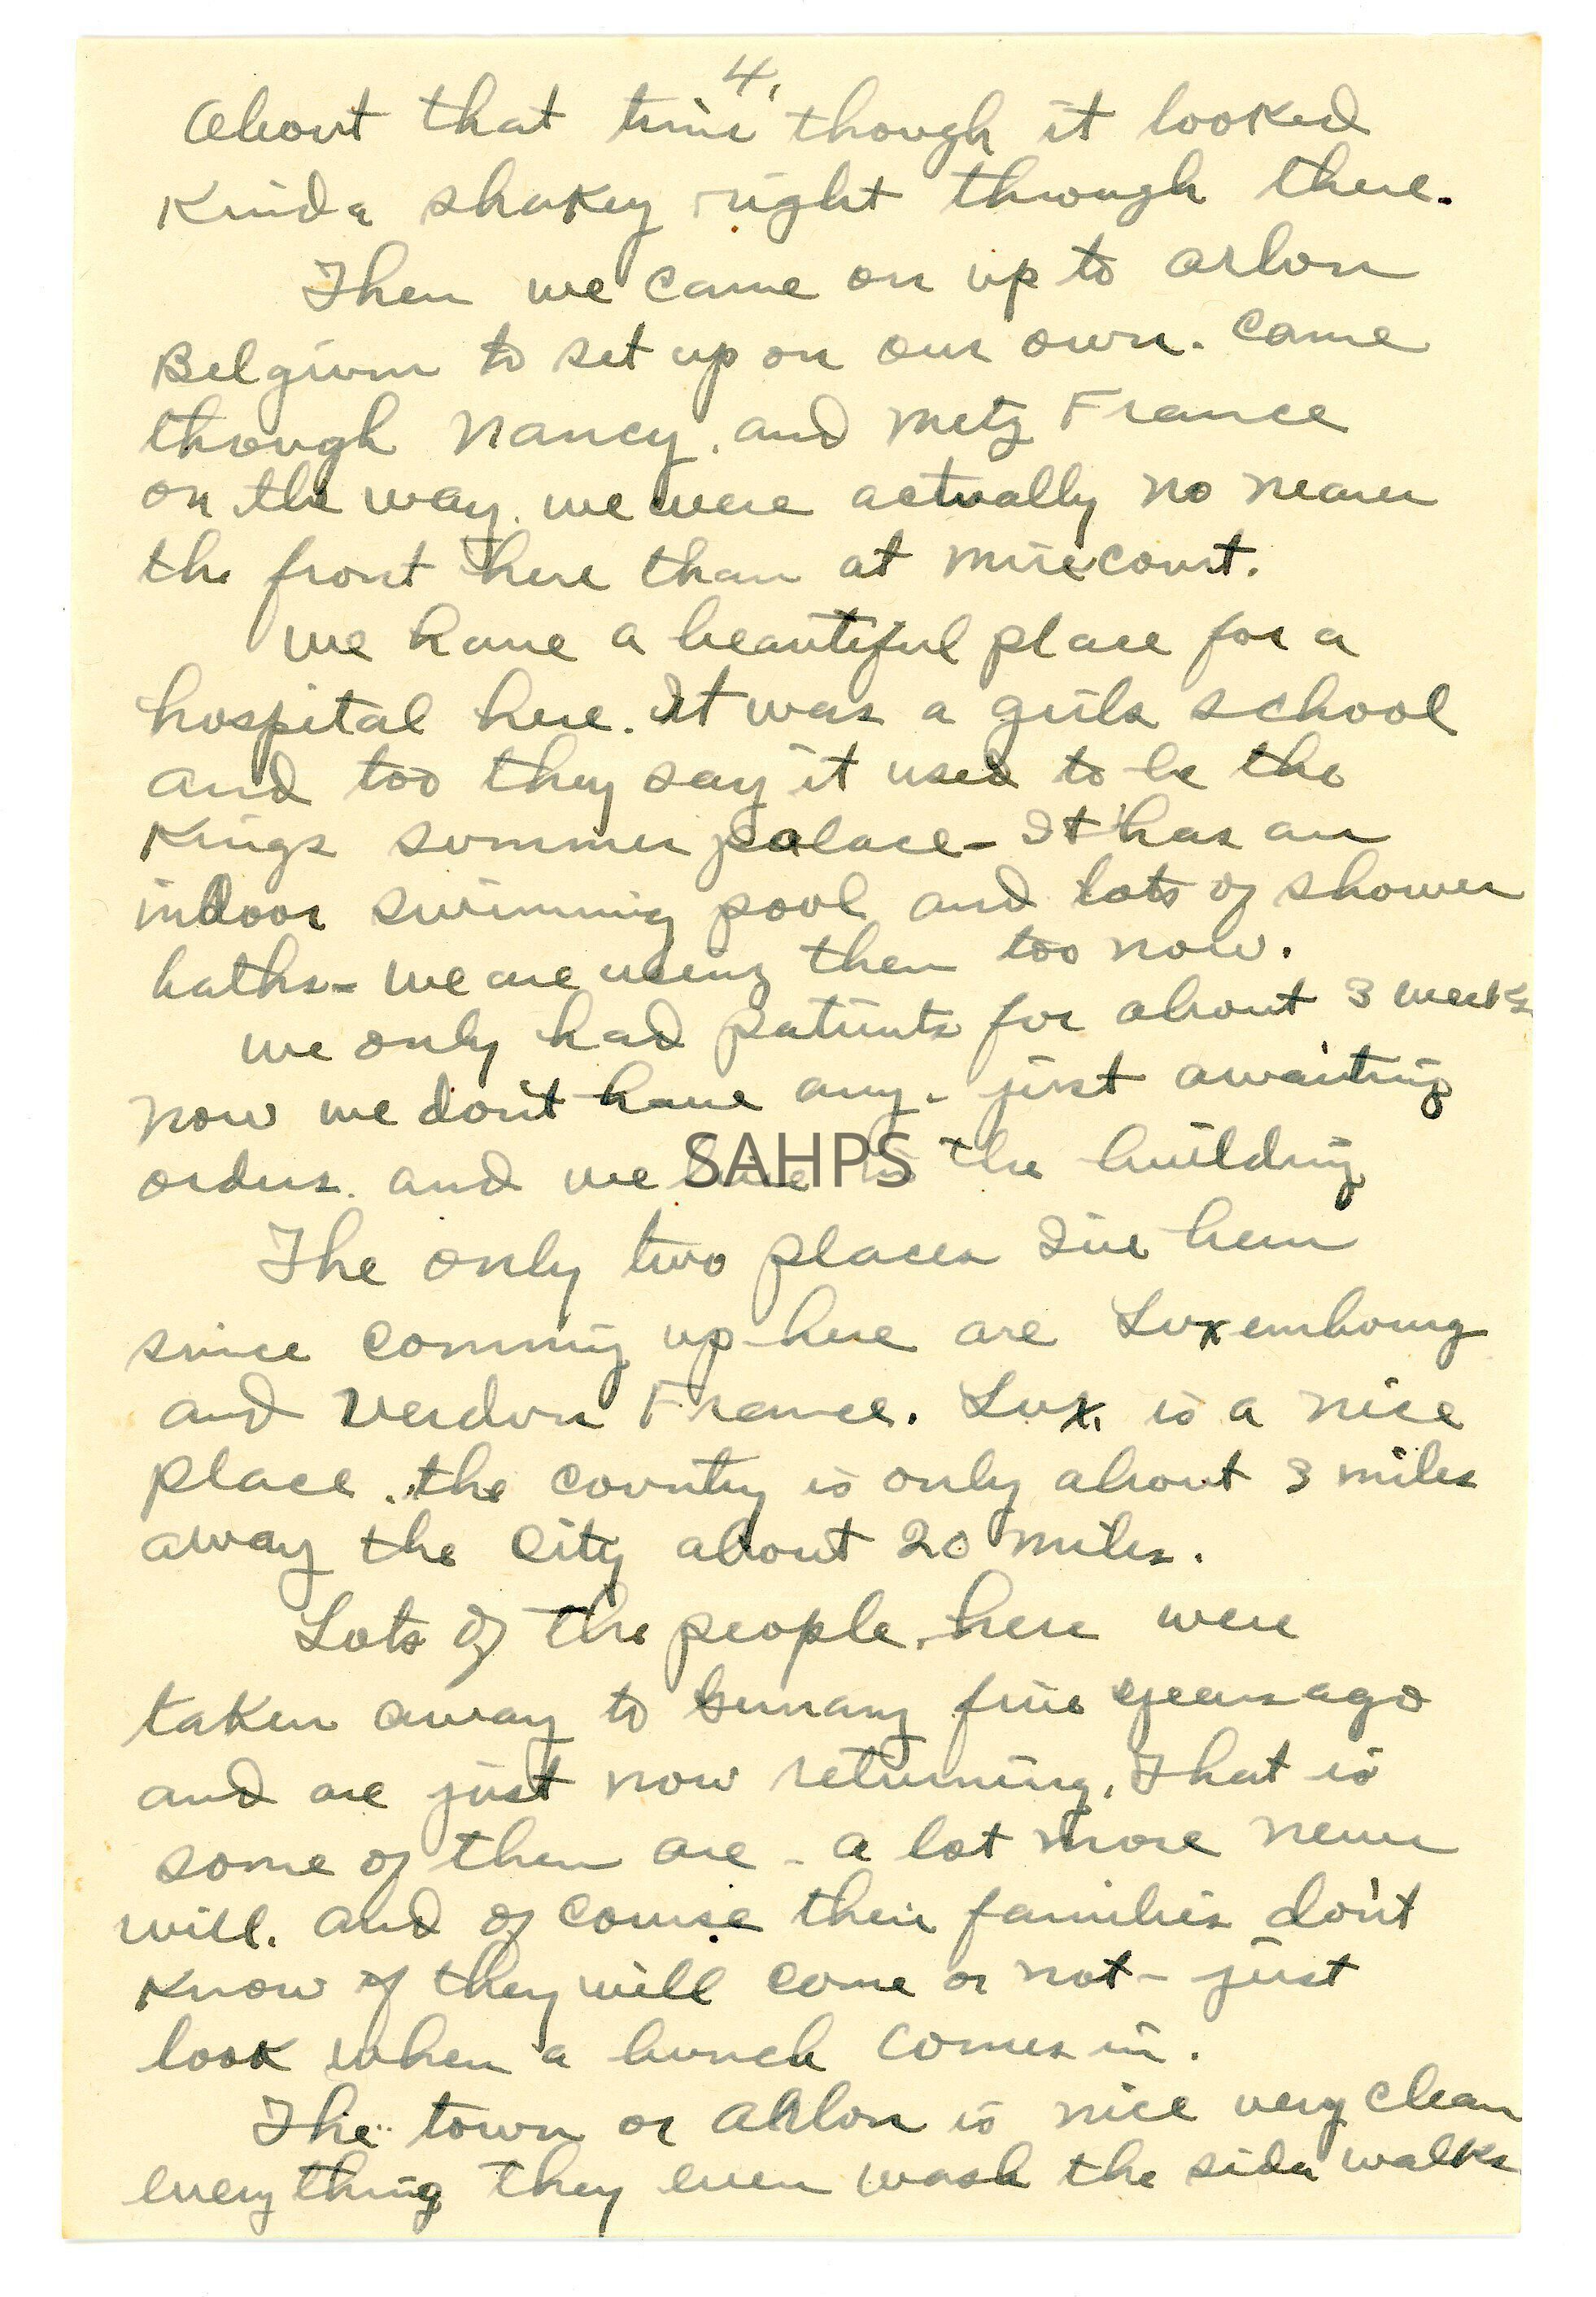 4.
About that time though it looked
Kinda shakey right through there.
Then we came on up to Arlon
Belgium to set up on our own. Came
through Nancy, and Metz France
on the way. we were actually no nearer
the front here than at Mirecourt.
We have a beautiful place for a
hospital here. It was a girls school
and too they say it used to be the
Kings summer palace - It has an
indoor swimming pool and lots of shower
baths - We are using them too now.
We only had patients for about 3 weeks
now we don't have any - just awaiting
orders. and we live in the building
SAHPS
The only two places I've been
since comming up here are Luxembourg
and Verdun France. Lux. is a nice
place. the country is only about 3 miles
away the city about 20 miles.
Lots of the people here were
taken away to Germany five years ago
and are just now returning. That is
some of them are - a lot more never
will. and of course their families don't
know if they will come or not - just
look when a bunch comes in.
The town or Arlon is nice very clean
everything they even wash the side walks